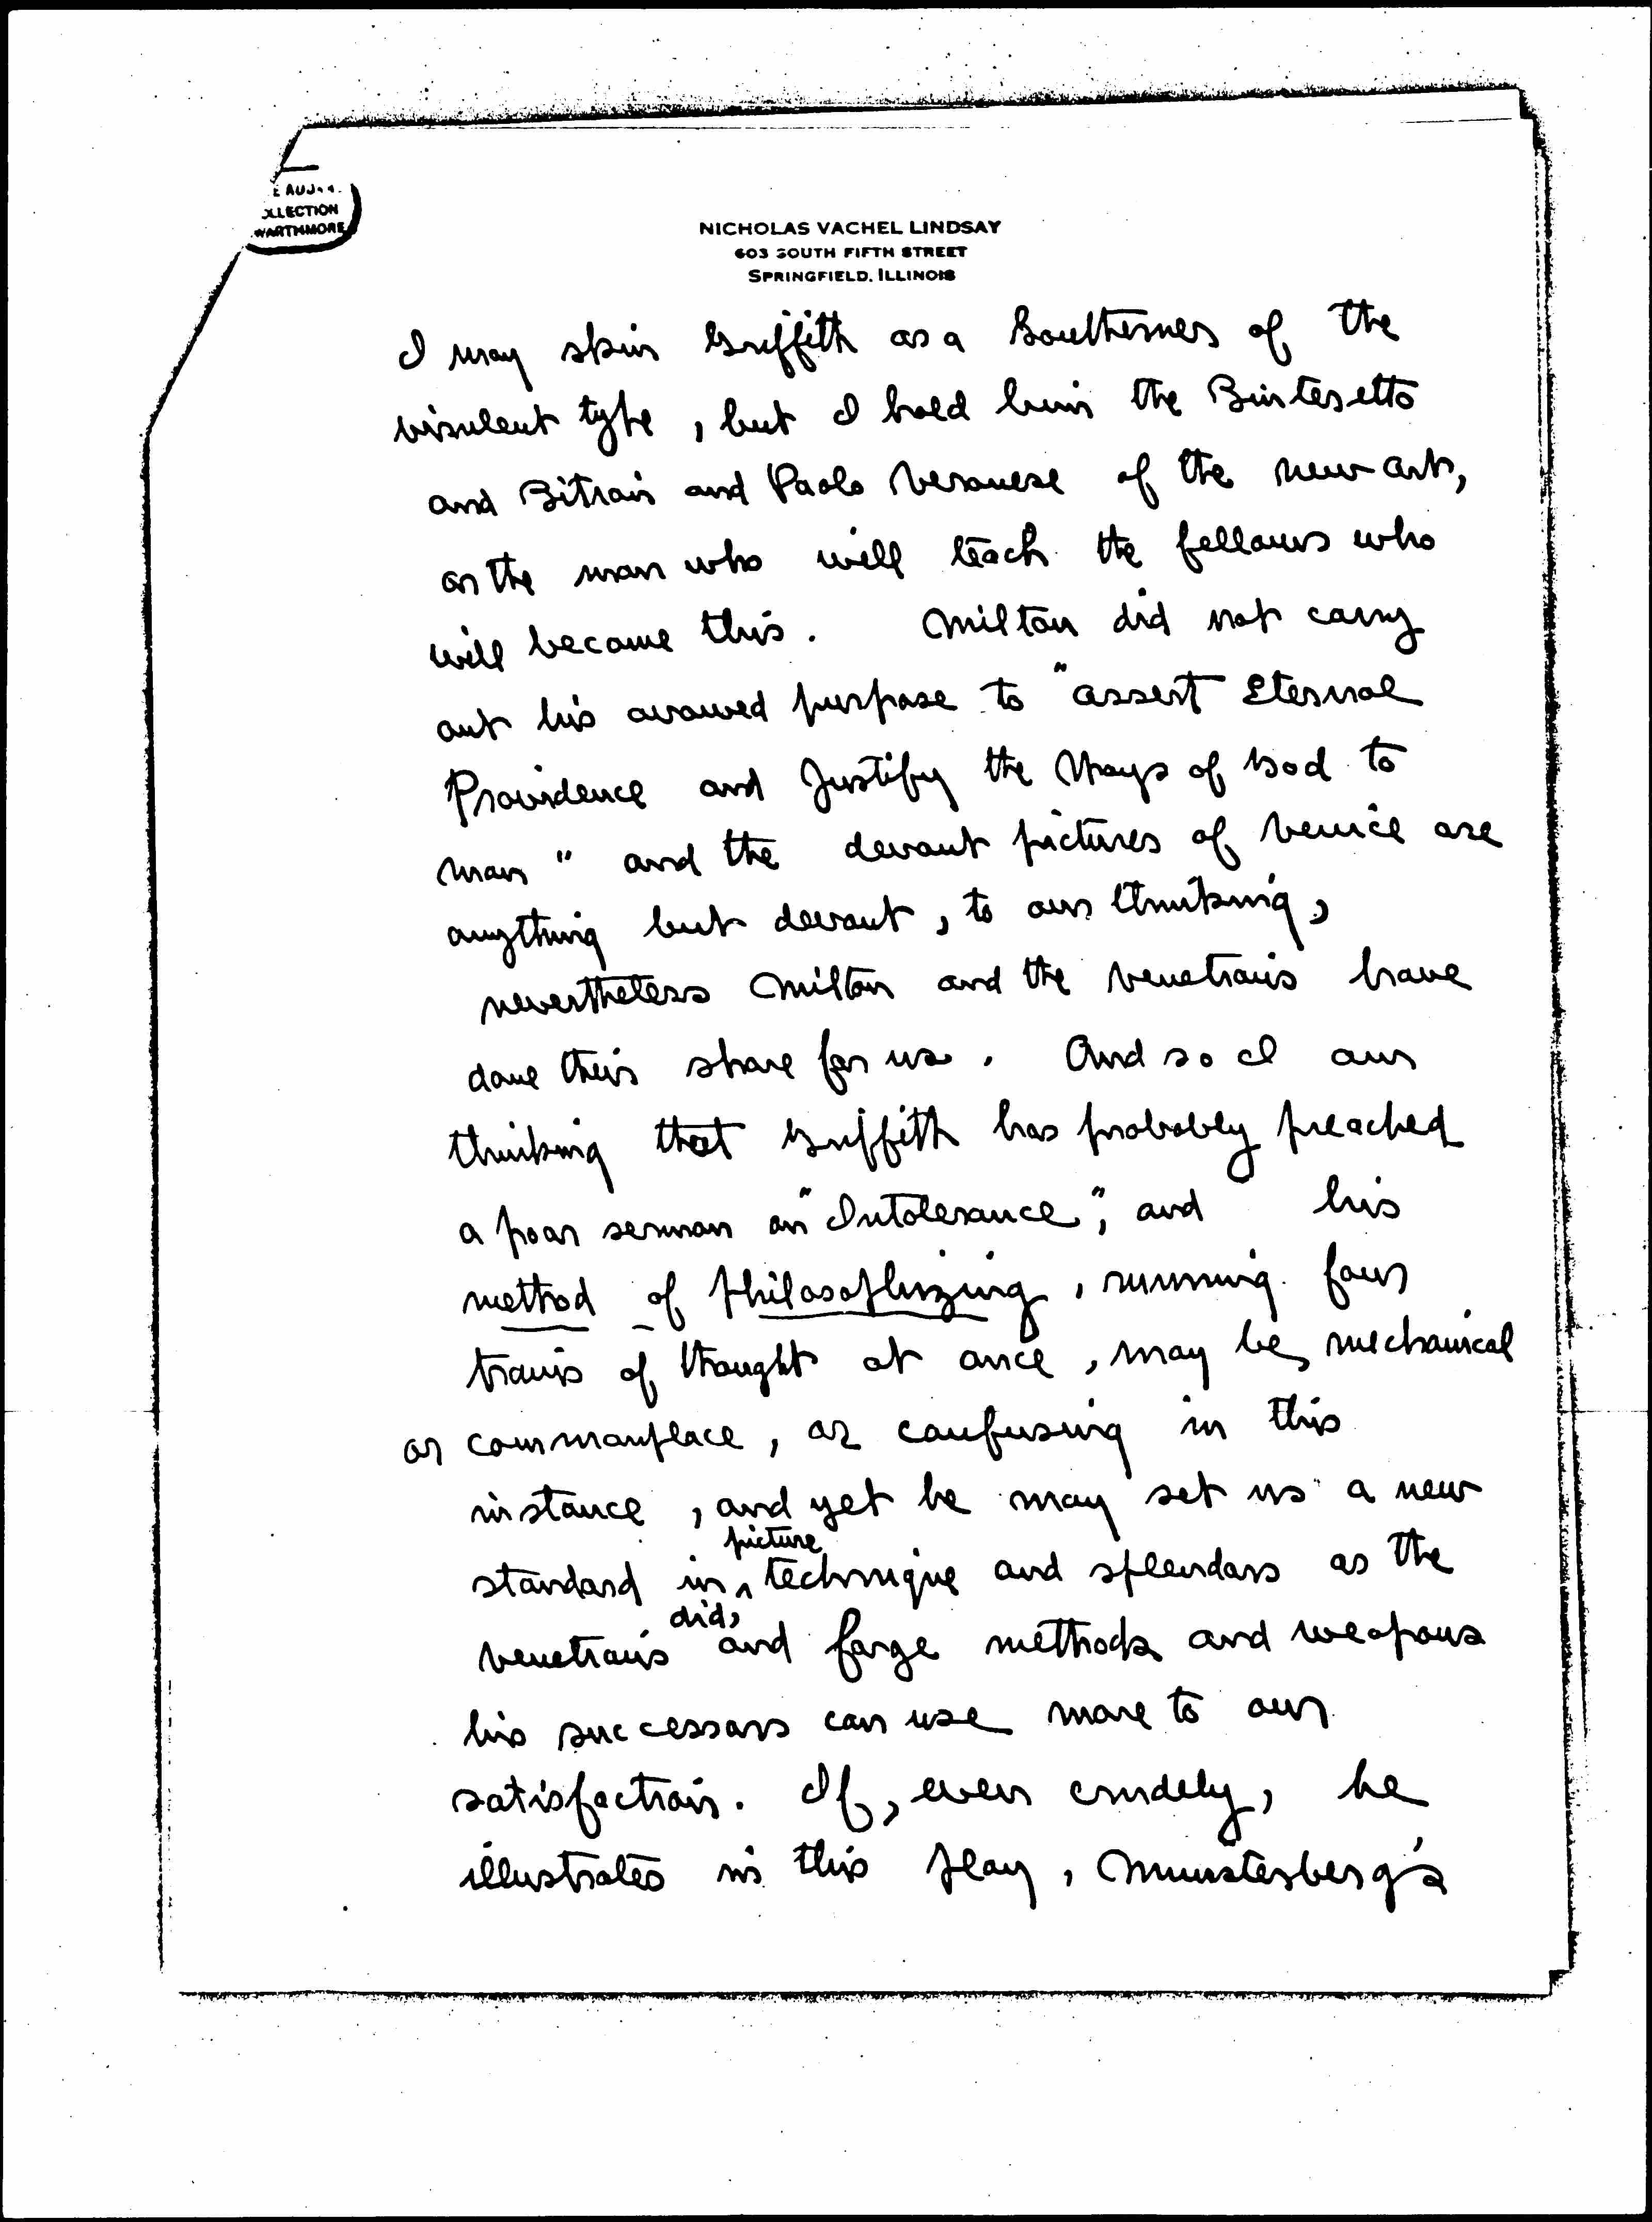 OLLECTION
WARTHMORE
NICHOLAS VACHEL LINDSAY
603 SOUTH FIFTH STREET
SPRINGFIELD, ILLINOIS
I may skin Griffith as a Southerner of the
virulent type, but I hold him the Tintoretto
and Titian and Paolo Veronese of the new art,
or the man who will teach the fellows who
will become this. Milton did not carry
out his avowed purpose to "assert Eternal
Providence and Justify the Ways of God to
man" and the devout pictures of Venice are
anything but devout, to our thinking,
nevertheless Milton and the Venetians have
done their share for us. And so I am
thinking that Griffith has probably preached
a poor sermon on "Intolerance", and his
method of philosophizing, running four
trains of thought at once, may be mechanical
or commonplace, or confusing in this
instance, and yet he may set us a new
standard in picture technique and splendors as the
Venetians did, and forge methods and weapons
his successors can use more to our
satisfaction. If, even crudely, he
illustrates in this play, Munsterberg's